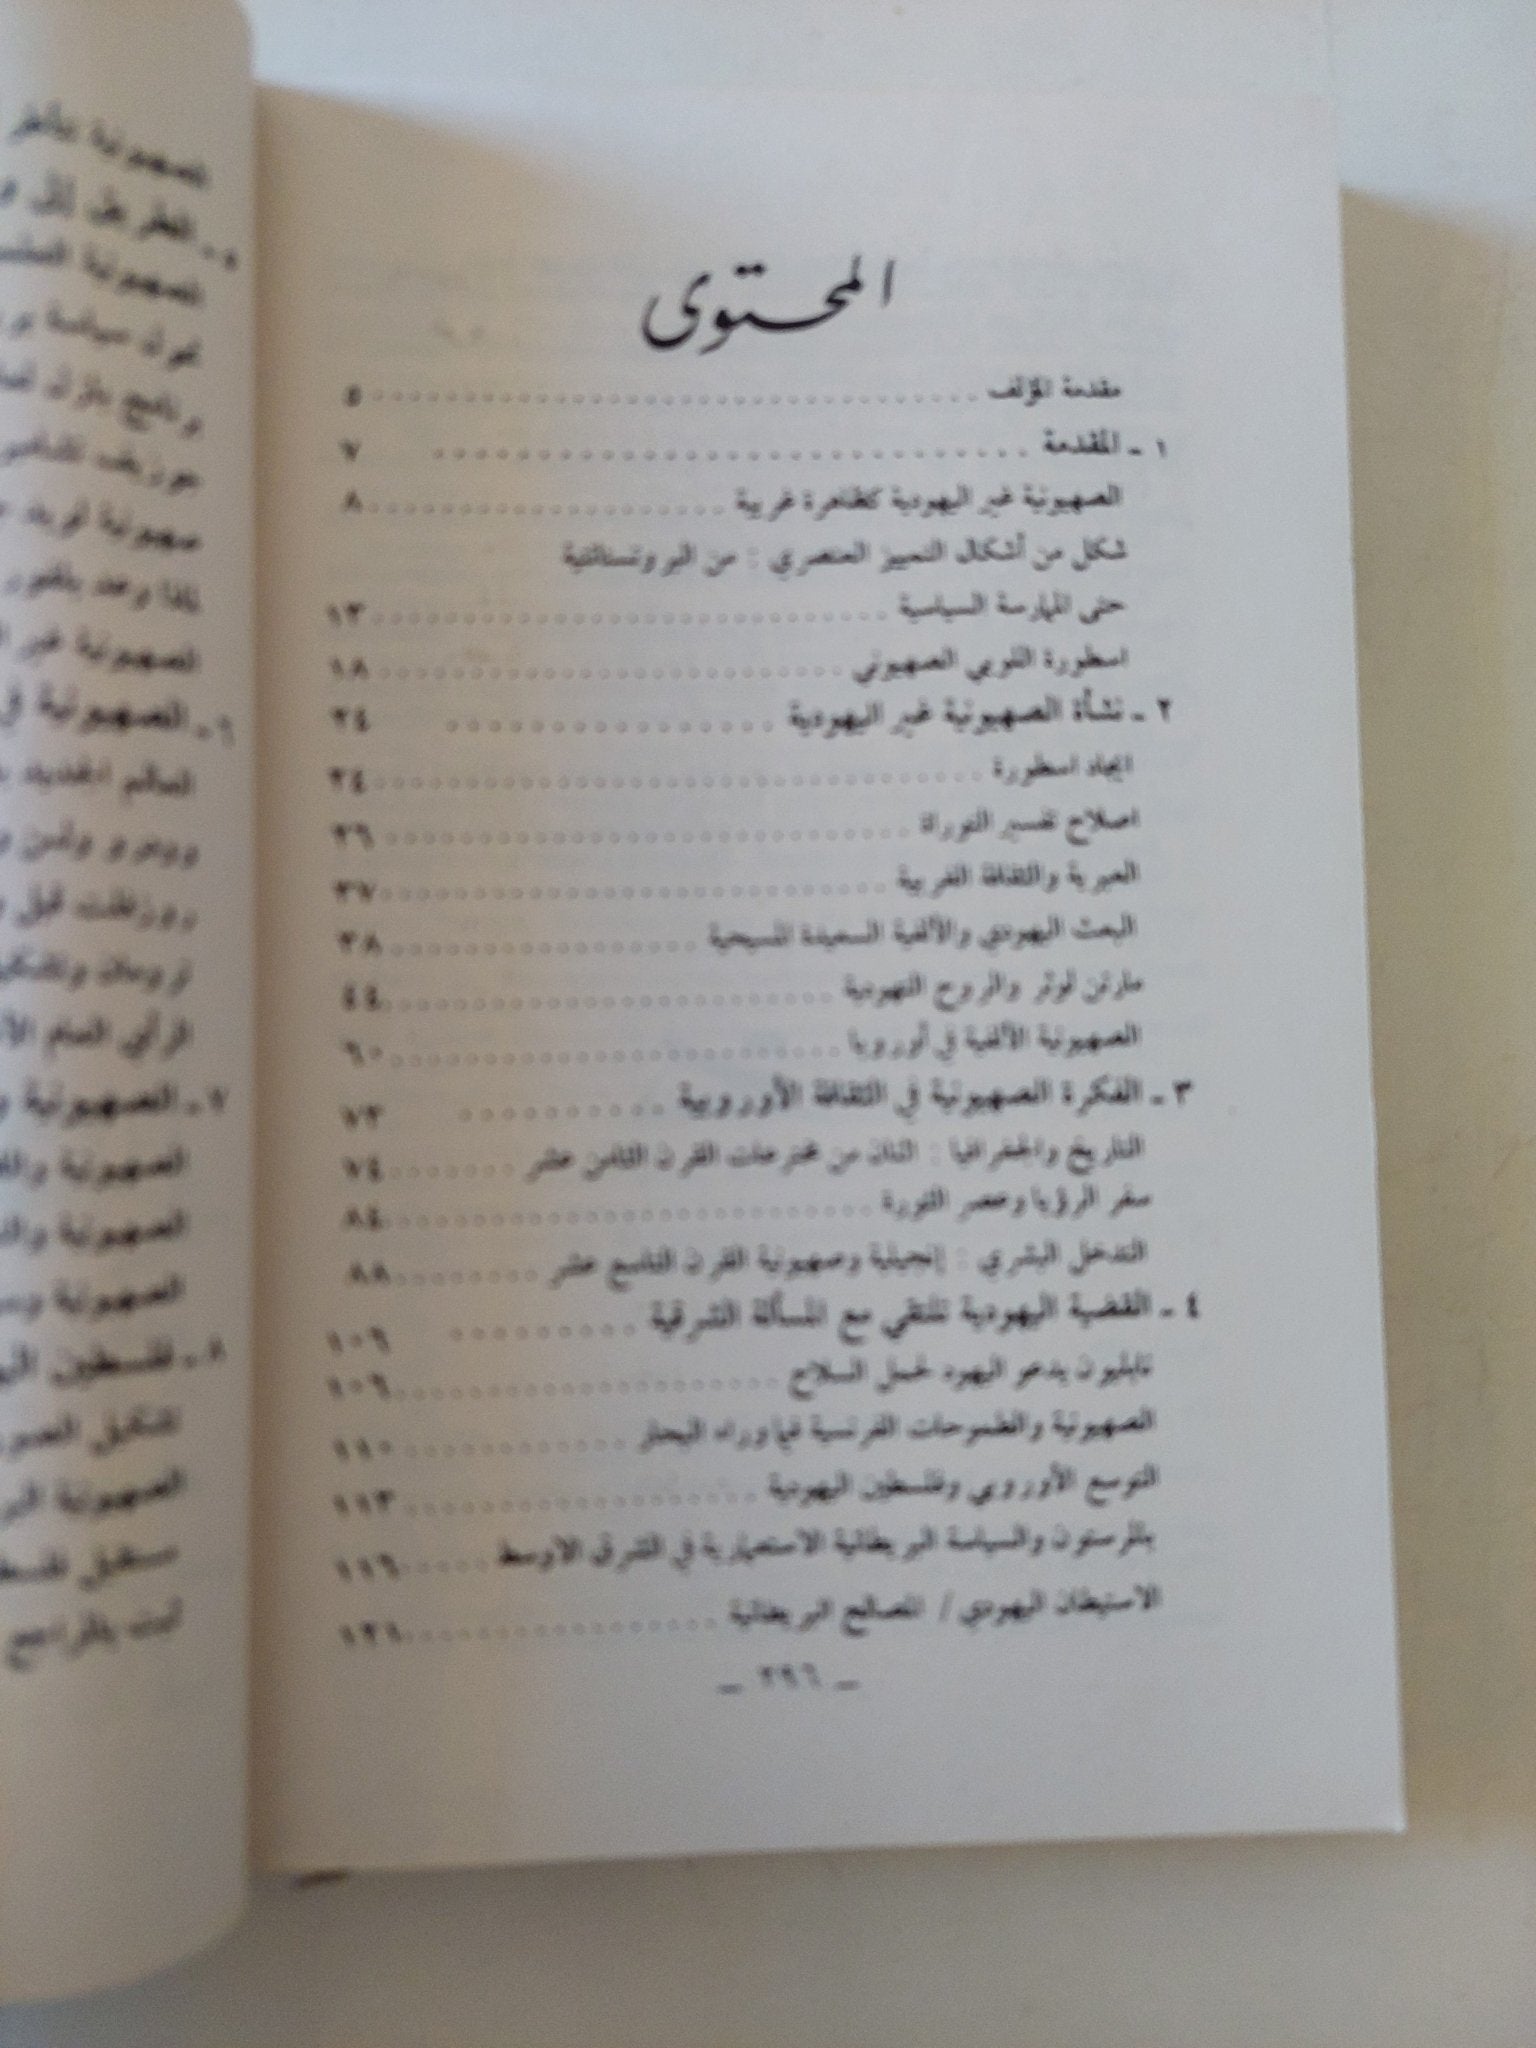 المحتوى
مقدمة المؤلف ٥
١ - المقدمة ٧
الصهيونية غير اليهودية كظاهرة غربية ٨
شكل من أشكال التمييز العنصري : من البروتستانتية
حتى الممارسة السياسية ١٣
اسطورة اللوبي الصهيوني ١٨
٢ - نشأة الصهيونية غير اليهودية ٢٤
ايجاد اسطورة ٢٤
اصلاح تفسير التوراة
العبرية والثقافة الغربية
البعث اليهودي والألفية السعيدة المسيحية
مارتن لوثر والروح اليهودية ٤٤
الصهيونية الألفية في أوروبا ٦٠
٣ - الفكرة الصهيونية في الثقافة الأوروبية ٧٣
التاريخ والجغرافيا : اثنان من مخترعات القرن الثامن عشر ٧٤
سفر الرؤيا وعصر الثورة ٨٤
التدخل البشري : إنجيلية وصهيونية القرن التاسع عشر ٨٨
٤ - القضية اليهودية تلتقي مع المسألة الشرقية ١٠٦
نابليون يدعو اليهود لحمل السلاح ١٠٦
الصهيونية والطموحات الفرنسية فيما وراء البحار ١١٠
التوسع الأوروبي وفلسطين اليهودية ١١٣
بالمرستون والسياسة البريطانية الاستعمارية في الشرق الاوسط ١١٦
الاستيطان اليهودي / المصالح البريطانية
- ٢٩٦ -
الصهيونية
٥ - الطريق إلى
الصهيونية
سياسة
جوزيف تشامبرلين
صهيونية لويد
لماذا وعد بلفور
الصهيونية غير
٦ - الصهيونية في
العالم الجديد
وودرو ولسن
روزفلت قبل
ترومان
الرأي العام
٧ - الصهيونية
الصهيونية
الصهيونية
الصهيونية
٨ - فلسطين
تشكيل
الصهيونية
مستقبل
ثبت بالمراجع